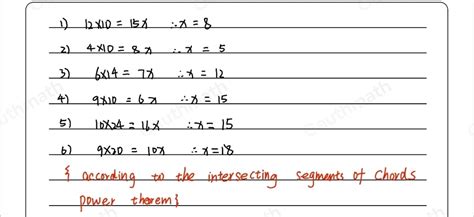 1) 12x10 = 15x ∴x = 8
2) 4x10 = 8x ∴x = 5
3) 6x14 = 7x ∴x = 12
4) 9x10 = 6x ∴x = 15
5) 10x24 = 16x ∴x = 15
6) 9x20 = 10x ∴x=18
{ according to the intersecting segments of Chords
power therem}